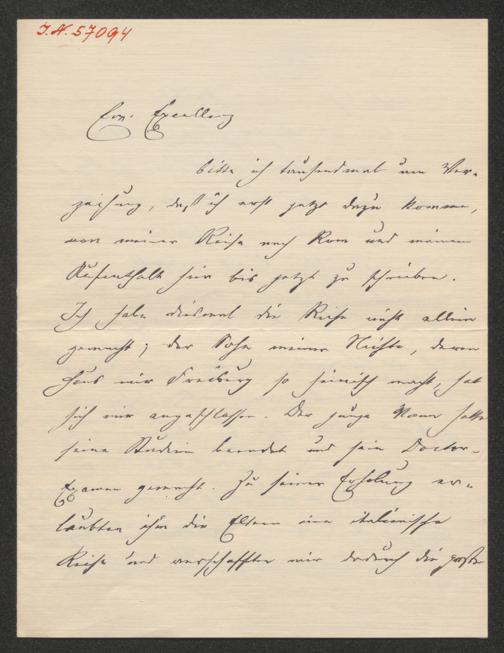 J.N. 57094
Ew. Excellenz
bitte ich tausendmal um Ver-
zeihung, daß ich erst jetzt dazu komme,
von meiner Reise nach Rom und meinem
Aufenthalt hier bis jetzt zu schreiben.
Ich habe diesmal die Reise nicht allein
gemacht; der Sohn meiner Nichte, deren
Haus mir Freiburg so heimisch macht, hat
sich mir angeschlossen. Der junge Mann hatte
seine Studien beendet und sein Doctor-
Examen gemacht. Zu seiner Erholung er-
laubten ihm die Eltern eine italienische
Reise und verschafften mir dadurch die große